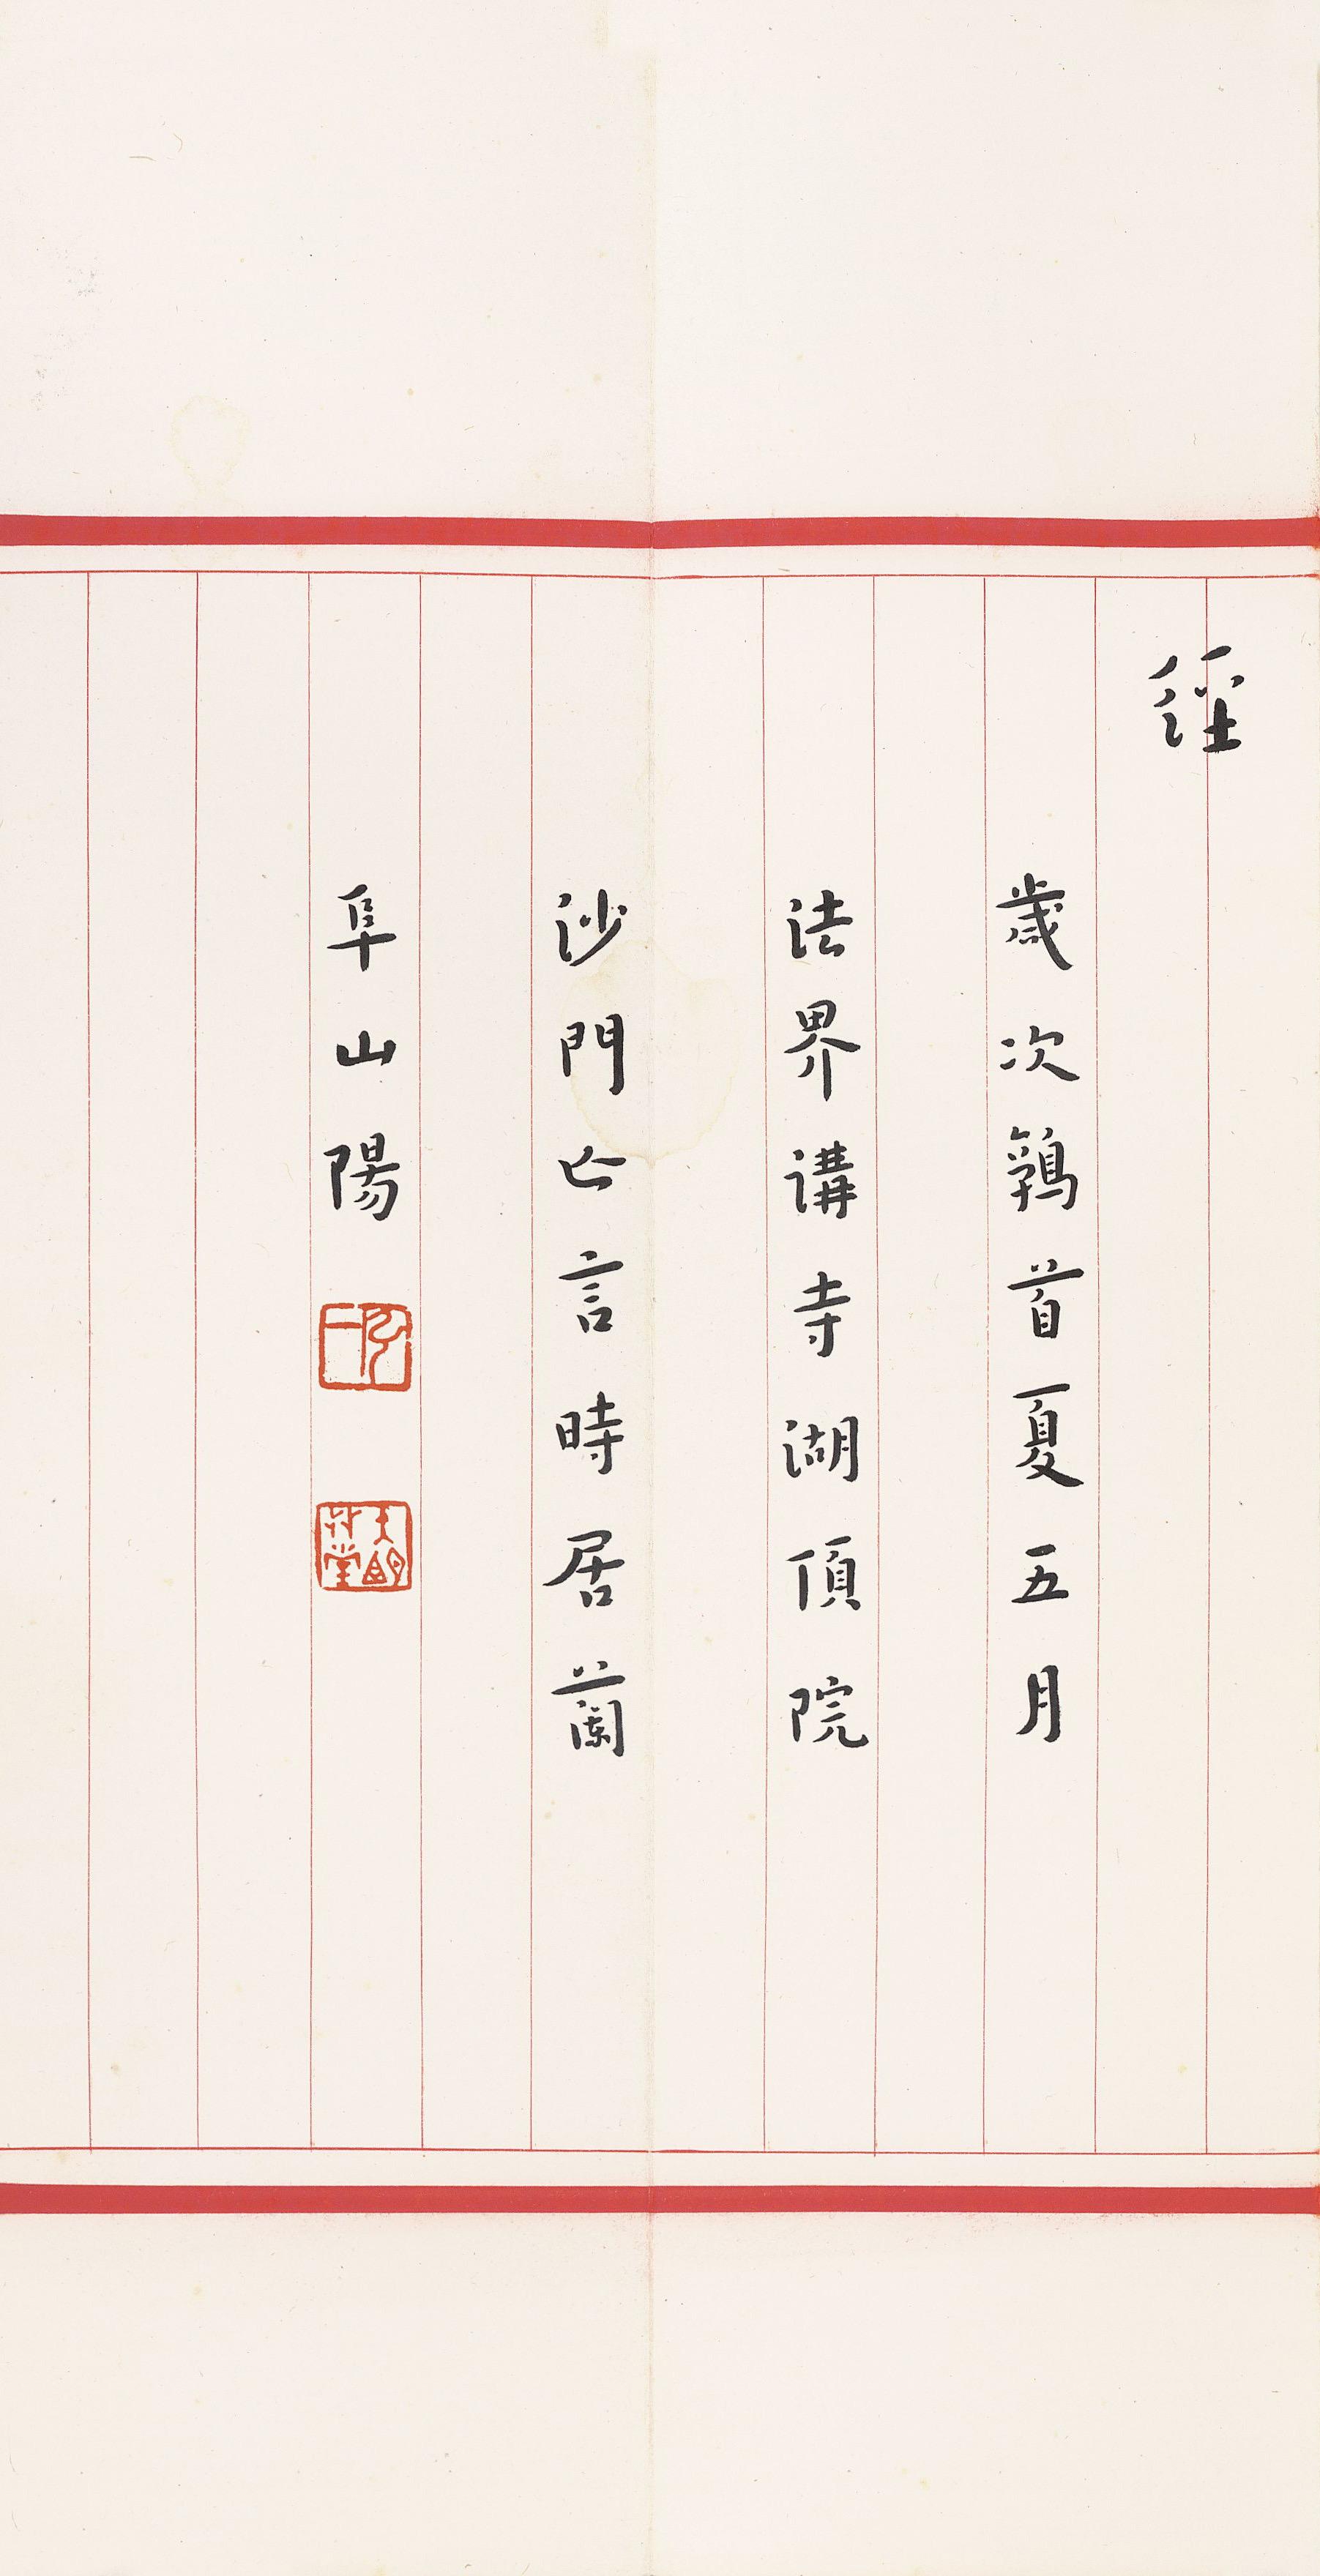 經
歲次鶉首夏五月
法界講寺湖頂院
沙門亡言時居蘭
阜山陽
弘一